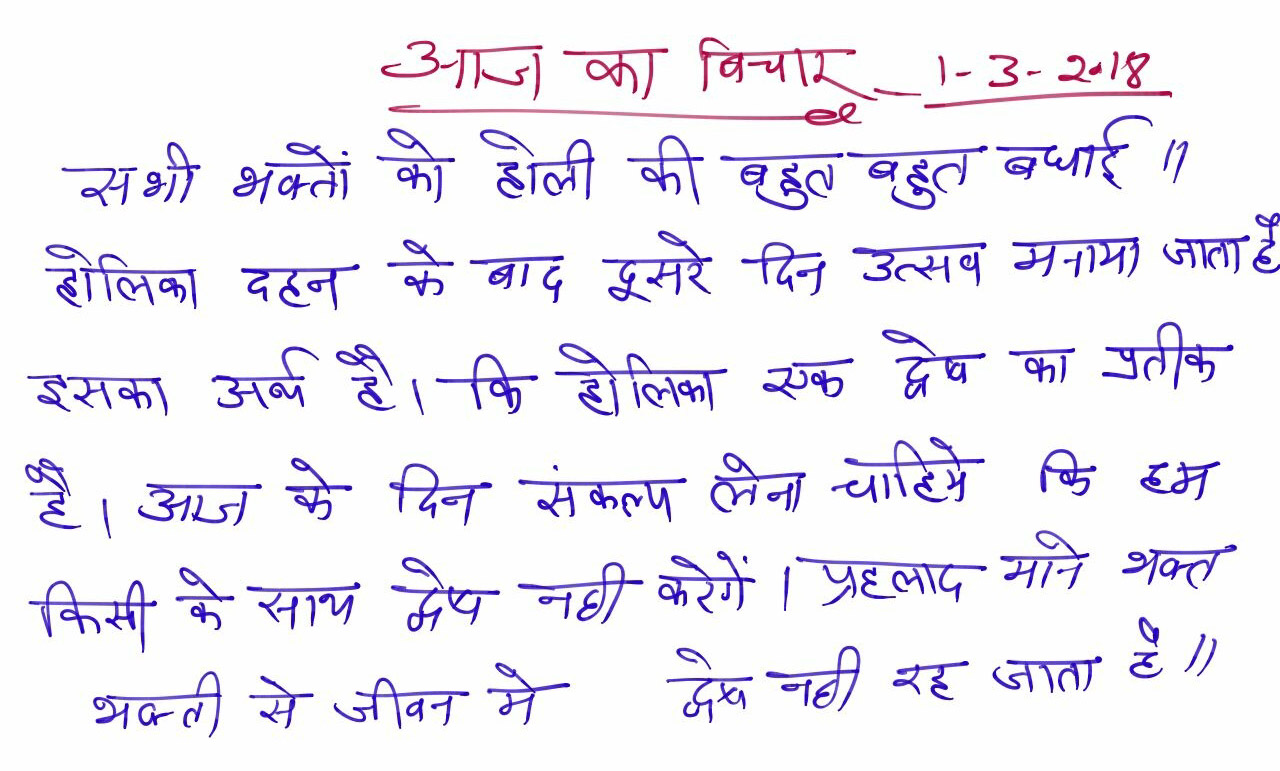 आज का विचार - 1-3-2018
सभी भक्तों को होली की बहुत बहुत बधाई ॥
होलिका दहन के बाद दूसरे दिन उत्सव मनाया जाता है
इसका अर्थ है। कि होलिका एक द्वेष का प्रतीक
है। आज के दिन संकल्प लेना चाहिये कि हम
किसी के साथ द्वेष नही करेगें। प्रहलाद माने भक्त
भक्ती से जीवन मे द्वेष नही रह जाता है ॥